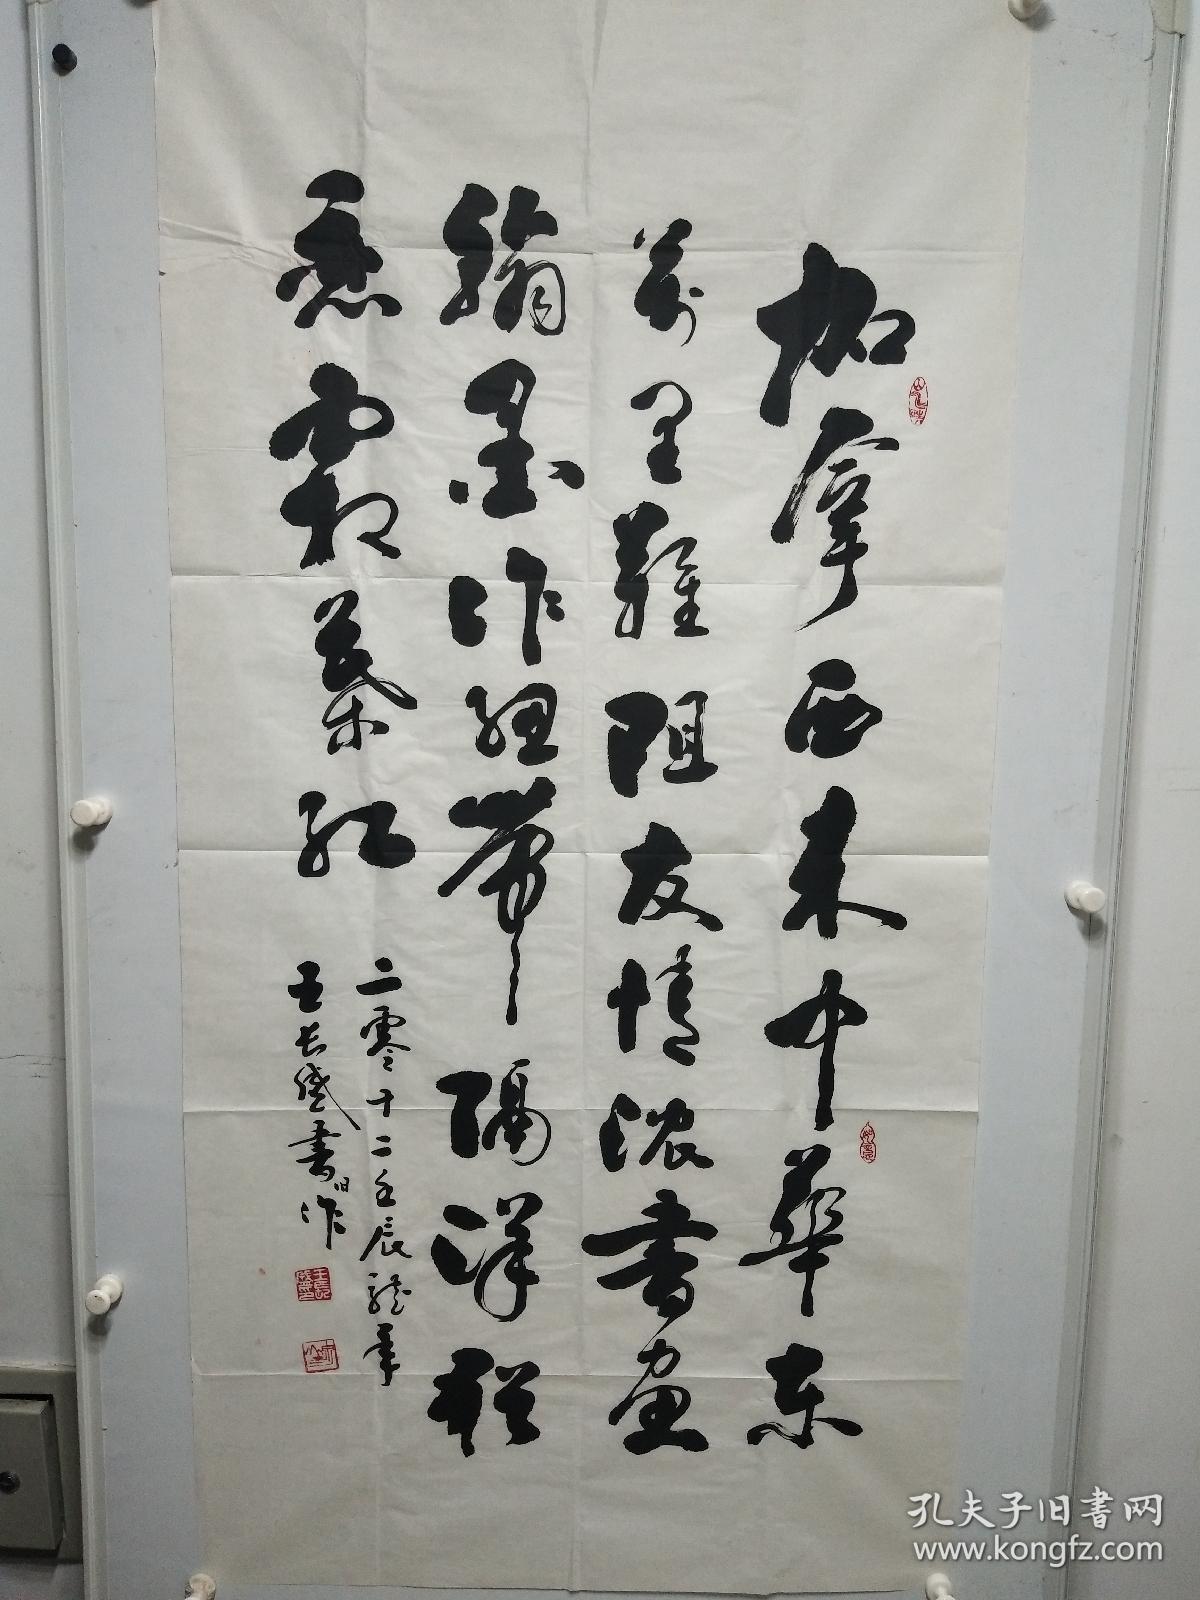 加拿西来中华东
万里难阻友情浓书画
翰墨作纽带隔洋犹
恋霜叶红
二零十二壬辰龙年
王长盛书旧作
孔夫子旧书网
www.kongfz.com